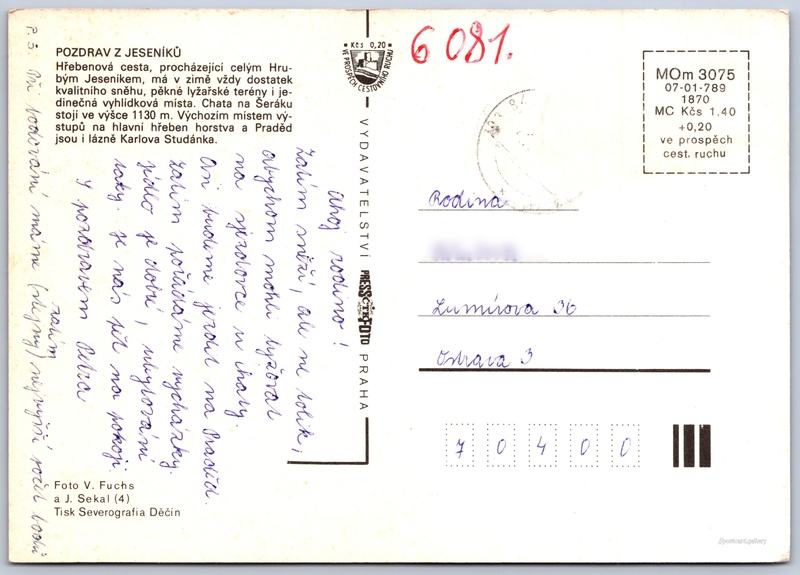 POZDRAV Z JESENÍKŮ
Hřebenová cesta, procházející celým Hru-
bým Jeseníkem, má v zimě vždy dostatek
kvalitního sněhu, pěkné lyžařské terény i je-
dinečná vyhlídková místa. Chata na Šeráku
stojí ve výšce 1130 m. Výchozím místem vý-
stupů na hlavní hřeben horstva a Praděd
jsou i lázně Karlova Studánka.
Ahoj rodino!
Zatím sněží, ale ne tolik,
abychom mohli lyžovat
na sjezdovce u chaty.
Asi budeme jezdit na Praděd.
Zatím pořádáme vycházky.
Jídlo je dobré, ubytování
taky. Je nás pět na pokoji.
S pozdravem Petra
P.S Při bodování máme zatím (stejný) nejvyšší počet bodů
Foto V. Fuchs
a J. Sekal (4)
Tisk Severografia Děčín
Kčs 0,20
VE PROSPĚCH CESTOVNÍHO RUCHU
VYDAVATELSTVÍ PRESSFOTO PRAHA
ČTK
6081.
MOm 3075
07-01-789
1870
MC Kčs 1.40
+0,20
ve prospěch
cest. ruchu
Rodina
Lumírova 36
Ostrava 3
7 0 4 0 0
postcard.gallery